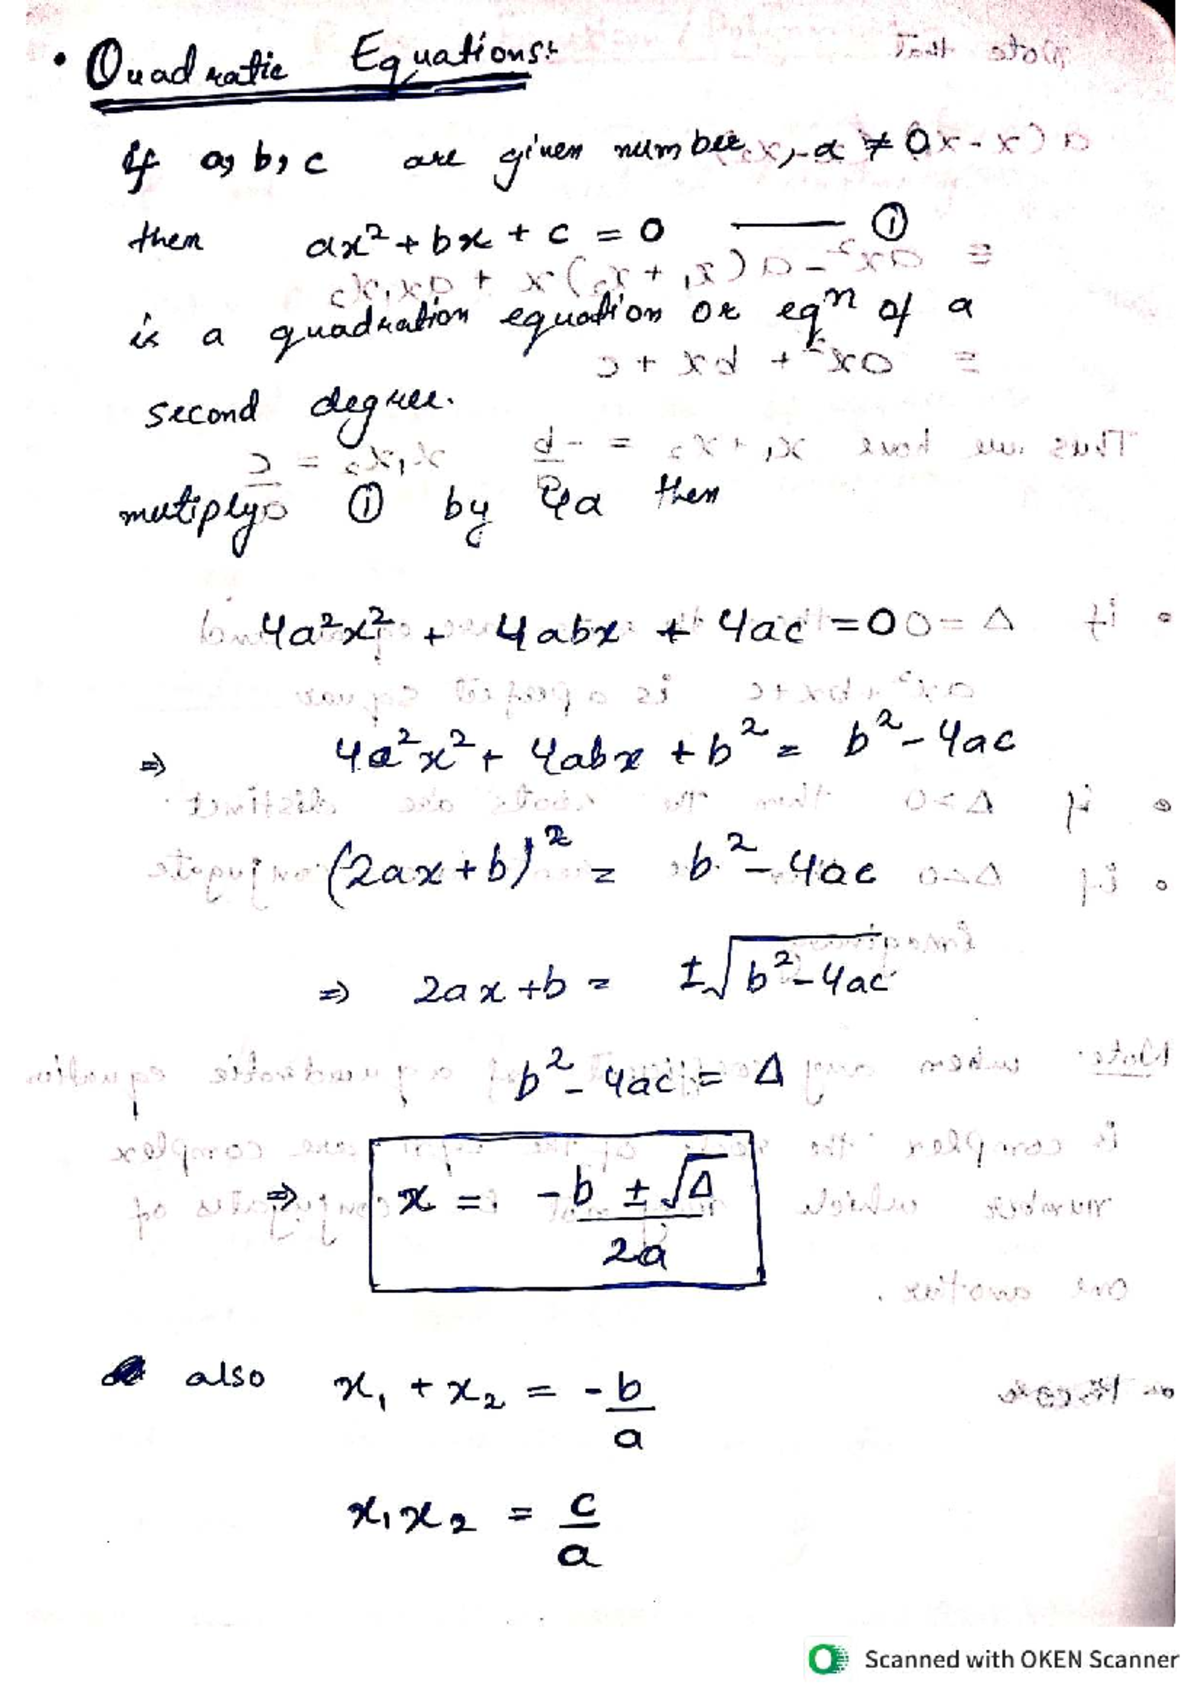 • Quadratic Equations:
If a, b, c are given number, a ≠ 0
then ax² + bx + c = 0 —— ①
is a quadration equation or eqⁿ of a
second degree.
mutiply ① by 4a then
4a²x² + 4abx + 4ac = 0
⇒ 4a²x² + 4abx + b² = b² - 4ac
(2ax + b)² = b² - 4ac
⇒ 2ax + b = ±√(b² - 4ac)
b² - 4ac = Δ
⇒ x = (-b ± √Δ) / 2a
also x₁ + x₂ = -b/a
x₁x₂ = c/a
Scanned with OKEN Scanner